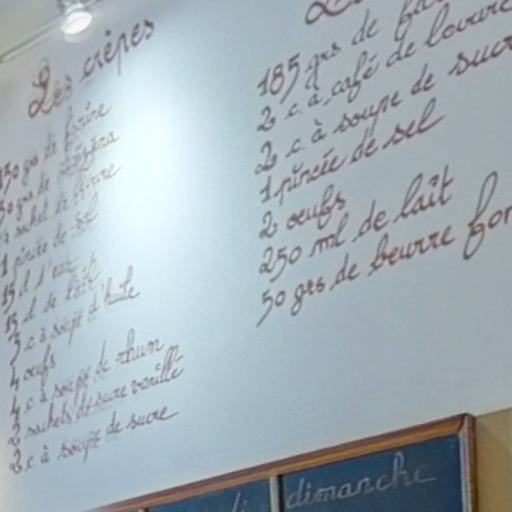 Les crêpes
150 grs de farine
50 grs de maïzena
1 sachet de levure
1 pincée de sel
15 cl d'eau
15 cl de lait
3 c à soupe d'huile
4 oeufs
4 c à soupe de rhum
2 sachets de sucre vanillé
2 c. à soupe de sucre
185 grs de
2 c. à café de levure
2 c. à soupe de sucr
1 pincée de sel
2 oeufs
250 ml de lait
50 grs de beurre fon
dimanche